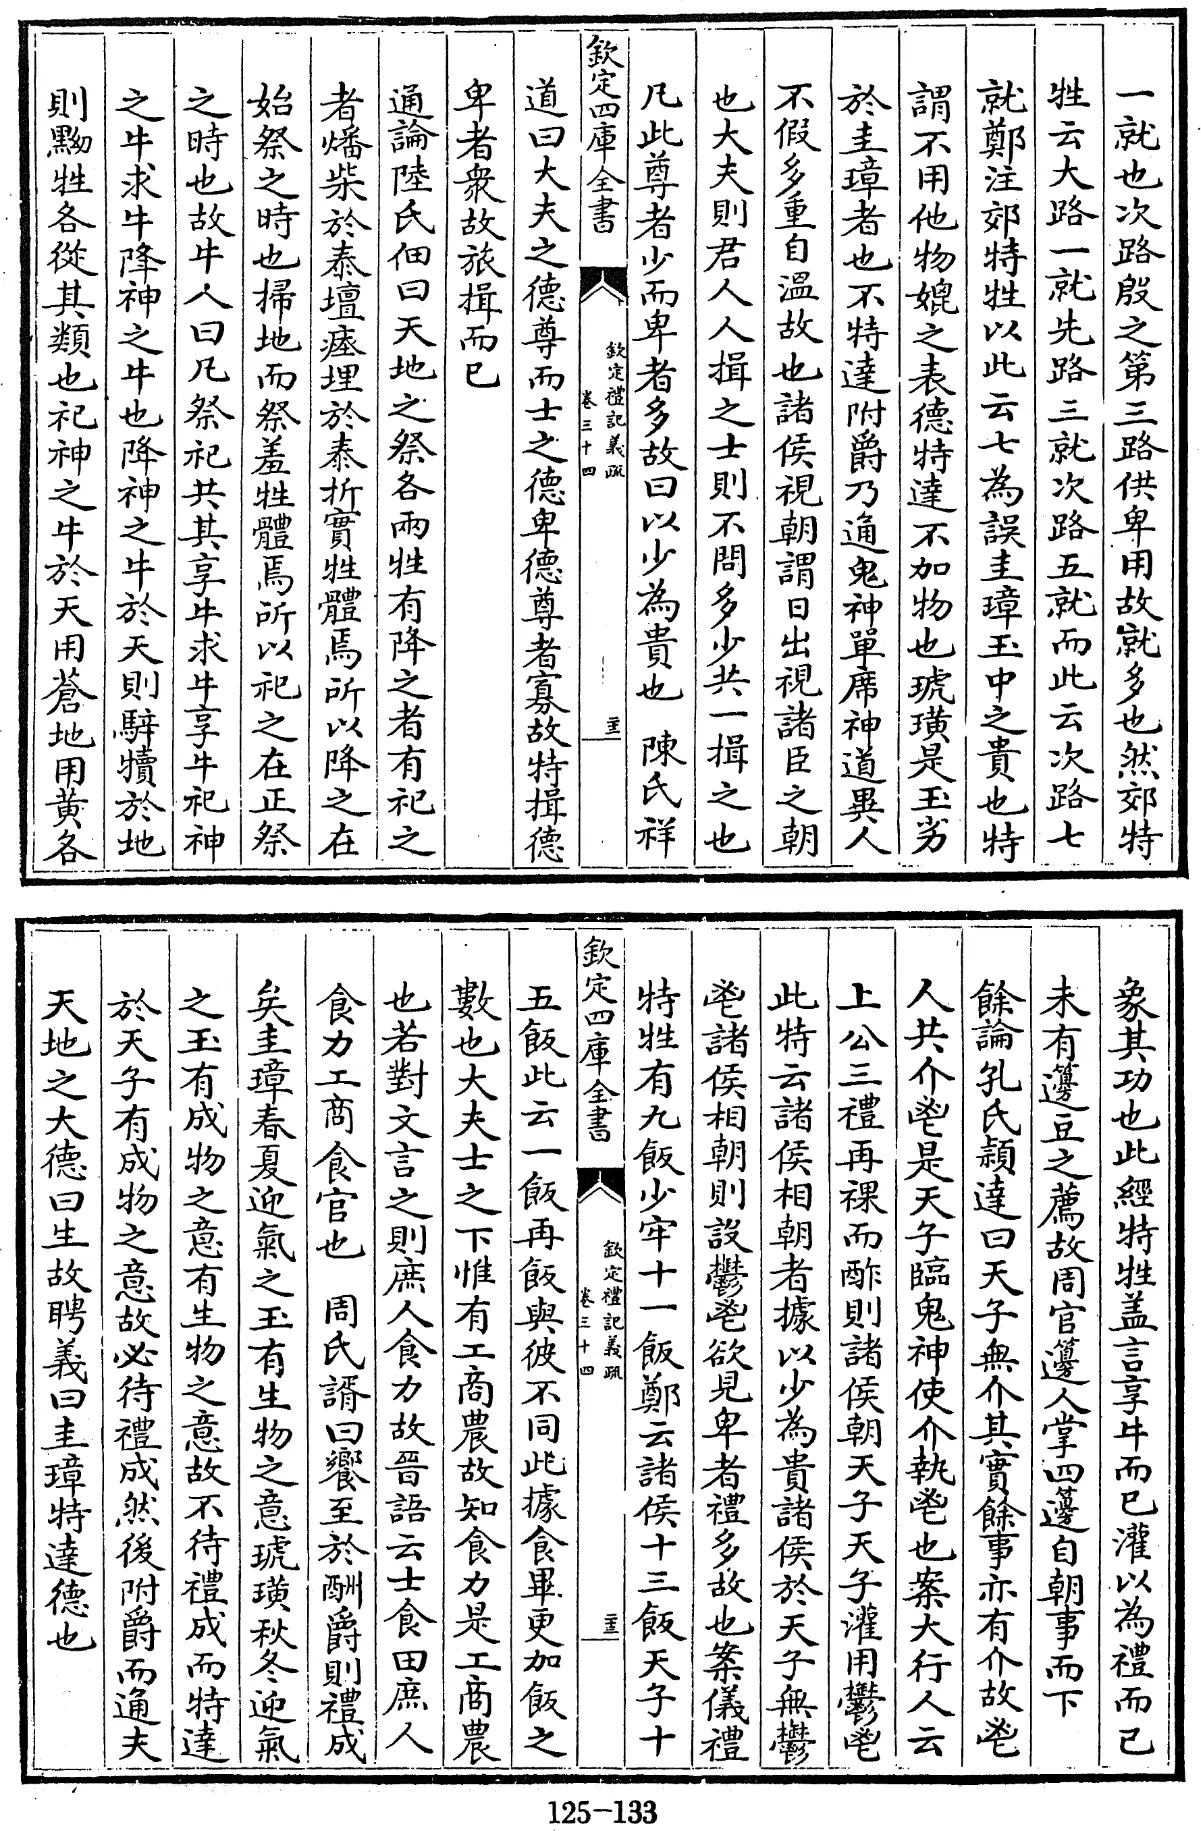 一就也次路殷之第三路供卑用故就多也然郊特
牲云大路一就先路三就次路五就而此云次路七
就鄭注郊特牲以此云七為誤圭璋玉中之貴也特
謂不用他物媲之表德特達不加物也琥璜是玉劣
於圭璋者也不特達附爵乃通鬼神單席神道異人
不假多重自溫故也諸侯視朝謂日出視諸臣之朝
也大夫則君人人揖之士則不問多少共一揖之也
凡此尊者少而卑者多故曰以少為貴也 陳氏祥
欽定四庫全書
欽定禮記義疏
卷三十四
道曰大夫之德尊而士之德卑德尊者寡故特揖德
卑者衆故旅揖而已
通論陸氏佃曰天地之祭各兩牲有降之者有祀之
者燔柴於泰壇瘞埋於泰折實牲體焉所以降之在
始祭之時也掃地而祭羞牲體焉所以祀之在正祭
之時也故牛人曰凡祭祀共其享牛求牛享牛祀神
之牛求牛降神之牛也降神之牛於天則騂犢於地
則黝牲各從其類也祀神之牛於天用蒼地用黄各
象其功也此經特牲盖言享牛而已灌以為禮而已
未有籩豆之薦故周官籩人掌四籩自朝事而下
餘論孔氏穎達曰天子無介其實餘事亦有介故鬯
人共介鬯是天子臨鬼神使介執鬯也案大行人云
上公三禮再祼而酢則諸侯朝天子天子灌用鬱鬯
此特云諸侯相朝者據以少為貴諸侯於天子無鬱
鬯諸侯相朝則設鬱鬯欲見卑者禮多故也案儀禮
特牲有九飯少牢十一飯鄭云諸侯十三飯天子十
欽定四庫全書
欽定禮記義疏
卷三十四
五飯此云一飯再飯與彼不同此據食畢更加飯之
數也大夫士之下惟有工商農故知食力是工商農
也若對文言之則庶人食力故晉語云士食田庶人
食力工商食官也 周氏諝曰饗至於酬爵則禮成
矣圭璋春夏迎氣之玉有生物之意琥璜秋冬迎氣
之玉有成物之意有生物之意故不待禮成而特達
於天子有成物之意故必待禮成然後附爵而通夫
天地之大德曰生故聘義曰圭璋特達德也
125-133